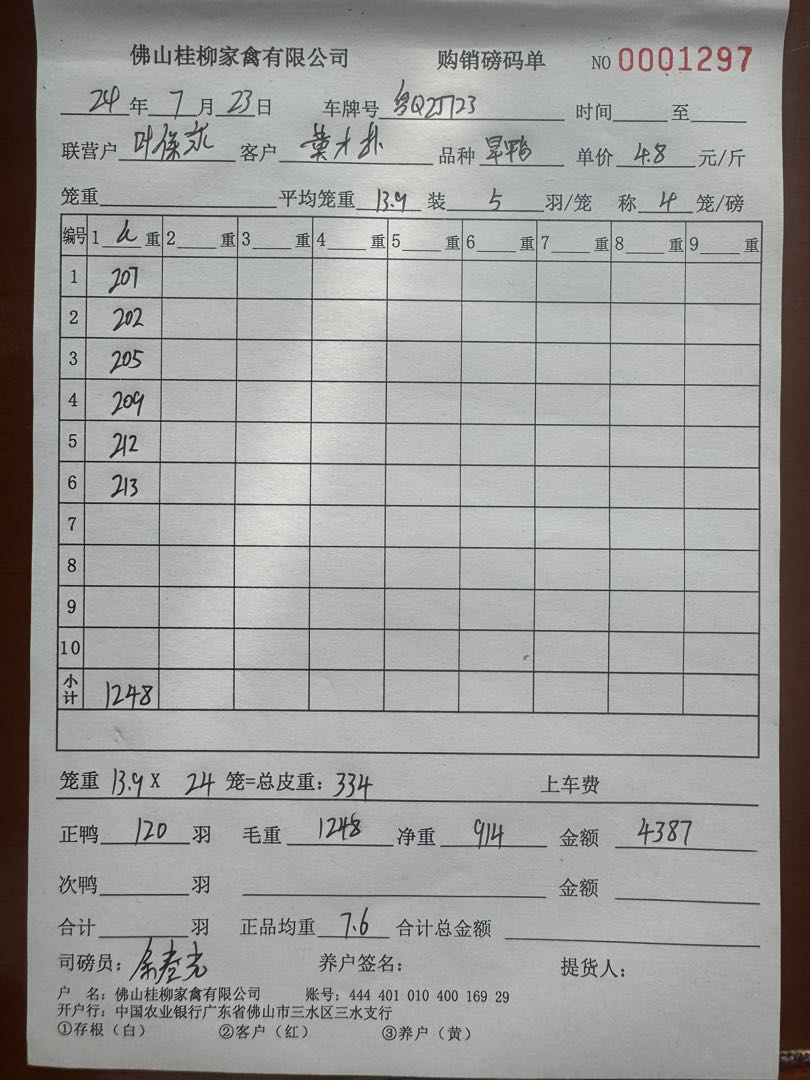 佛山桂柳家禽有限公司 购销磅码单 NO 0001297
24年 7月 23日 车牌号 粤Q2J723 时间 至
联营户 叶保求 客户 黄才扑 品种 旱鸭 单价 4.8 元/斤
笼重 平均笼重 13.9 装 5 羽/笼 称 4 笼/磅
编号 1 重 2 重 3 重 4 重 5 重 6 重 7 重 8 重 9 重
1 207
2 202
3 205
4 209
5 212
6 213
7
8
9
10
小计 1248
笼重 13.9 X 24 笼=总皮重: 334 上车费
正鸭 120 羽 毛重 1248 净重 914 金额 4387
次鸭 羽 金额
合计 羽 正品均重 7.6 合计总金额
司磅员: 养户签名: 提货人:
户 名: 佛山桂柳家禽有限公司 账号: 444 401 010 400 169 29
开户行: 中国农业银行广东省佛山市三水区三水支行
①存根(白) ②客户(红) ③养户(黄)